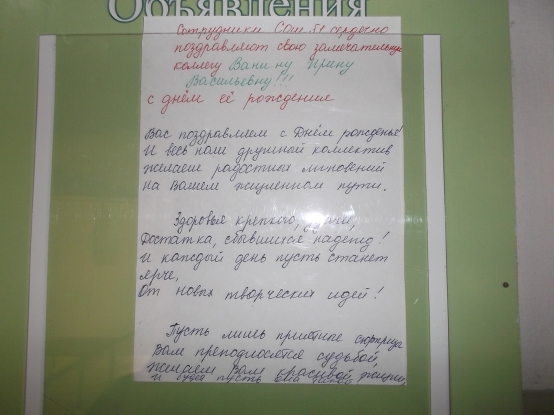 Объявления
Сотрудники СОШ сердечно
поздравляют свою замечательную
коллегу Ванину Ирину
Васильевну!!!
с днём её рождения
Вас поздравляем с Днём рожденья!
И весь наш дружный коллектив
желает радостных мгновений
на Вашем жизненном пути.
Здоровья крепкого, удачи,
Достатка, сбывшихся надежд!
И каждый день пусть станет
ярче,
От новых творческих идей!
Пусть лишь приятные сюрпризы
Вам преподносятся судьбой,
желаем Вам красивой жизни,
и пусть она